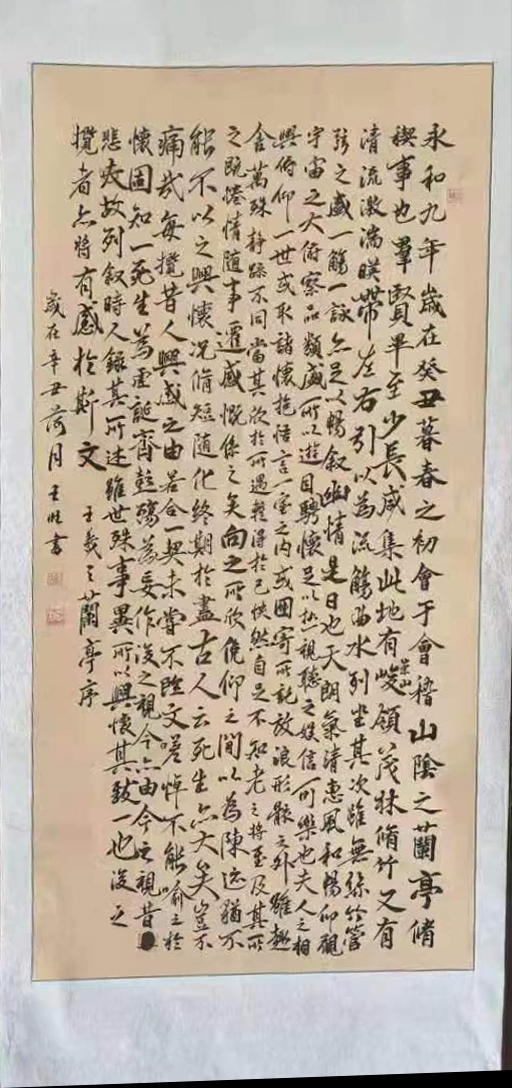 永和九年歲在癸丑暮春之初會于會稽山陰之蘭亭脩
禊事也羣賢畢至少長咸集此地有崇山峻領茂林脩竹又有
清流激湍暎帶左右引以為流觴曲水列坐其次雖無絲竹管
弦之盛一觴一詠亦足以暢敘幽情是日也天朗氣清惠風和暢仰觀
宇宙之大俯察品類盛所以遊目騁懷足以極視聽之娛信可樂也夫人之相
與俯仰一世或取諸懷抱悟言一室之內或因寄所託放浪形骸之外雖趣
舍萬殊靜躁不同當其欣於所遇蹔得於己怏然自足不知老之將至及其所
之既惓情隨事遷感慨係之矣向之所欣俛仰之間以為陳迹猶不
能不以之興懷況脩短隨化終期於盡古人云死生亦大矣豈不
痛哉每攬昔人興感之由若合一契未嘗不臨文嗟悼不能喻之於
懷固知一死生為虛誕齊彭殤為妄作後之視今亦由今之視昔
悲夫故列敘時人錄其所述雖世殊事異所以興懷其致一也後之
攬者亦將有感於斯文 王羲之蘭亭序
歲在辛丑荷月 王 書